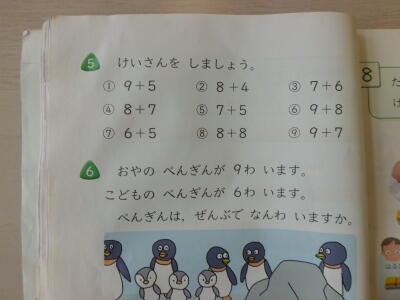 5 けいさんを しましょう。
① 9+5 ② 8+4 ③ 7+6
④ 8+7 ⑤ 7+5 ⑥ 9+8
⑦ 6+5 ⑧ 8+8 ⑨ 9+7
6 おやの ぺんぎんが 9わ います。
こどもの ぺんぎんが 6わ います。
ぺんぎんは，ぜんぶで なんわ いますか。
8
た